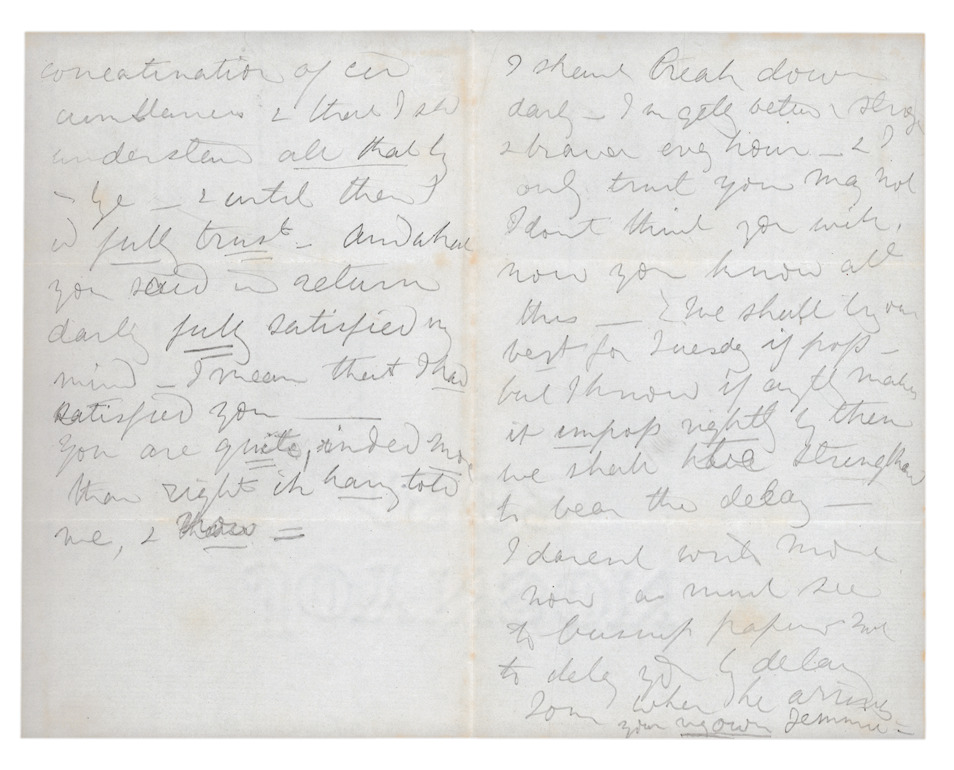 concatination of cir
cumstances & that I sh
understand all that by
& bye — & until then I
w fully trust — And what
you said in return
darlg fully satisfied my
mind — I mean that I had
satisfied you ———
You are quite, inded more
than right in havg told
me, & 
I should break down
darlg — I m gettg better & stronger
& braver evy hour — & I
only trust you may not
I dont think you will,
now you know all
this — We shall try our
best for Tuesdy if poss —
but I know if anythg makes
it imposs rightly by then
we shall have strength
to bear the delay —
I darent write more
now as must see
to business papers & not
to delay you by delayg
Tom when he arrives —
your vy own Jemmie —